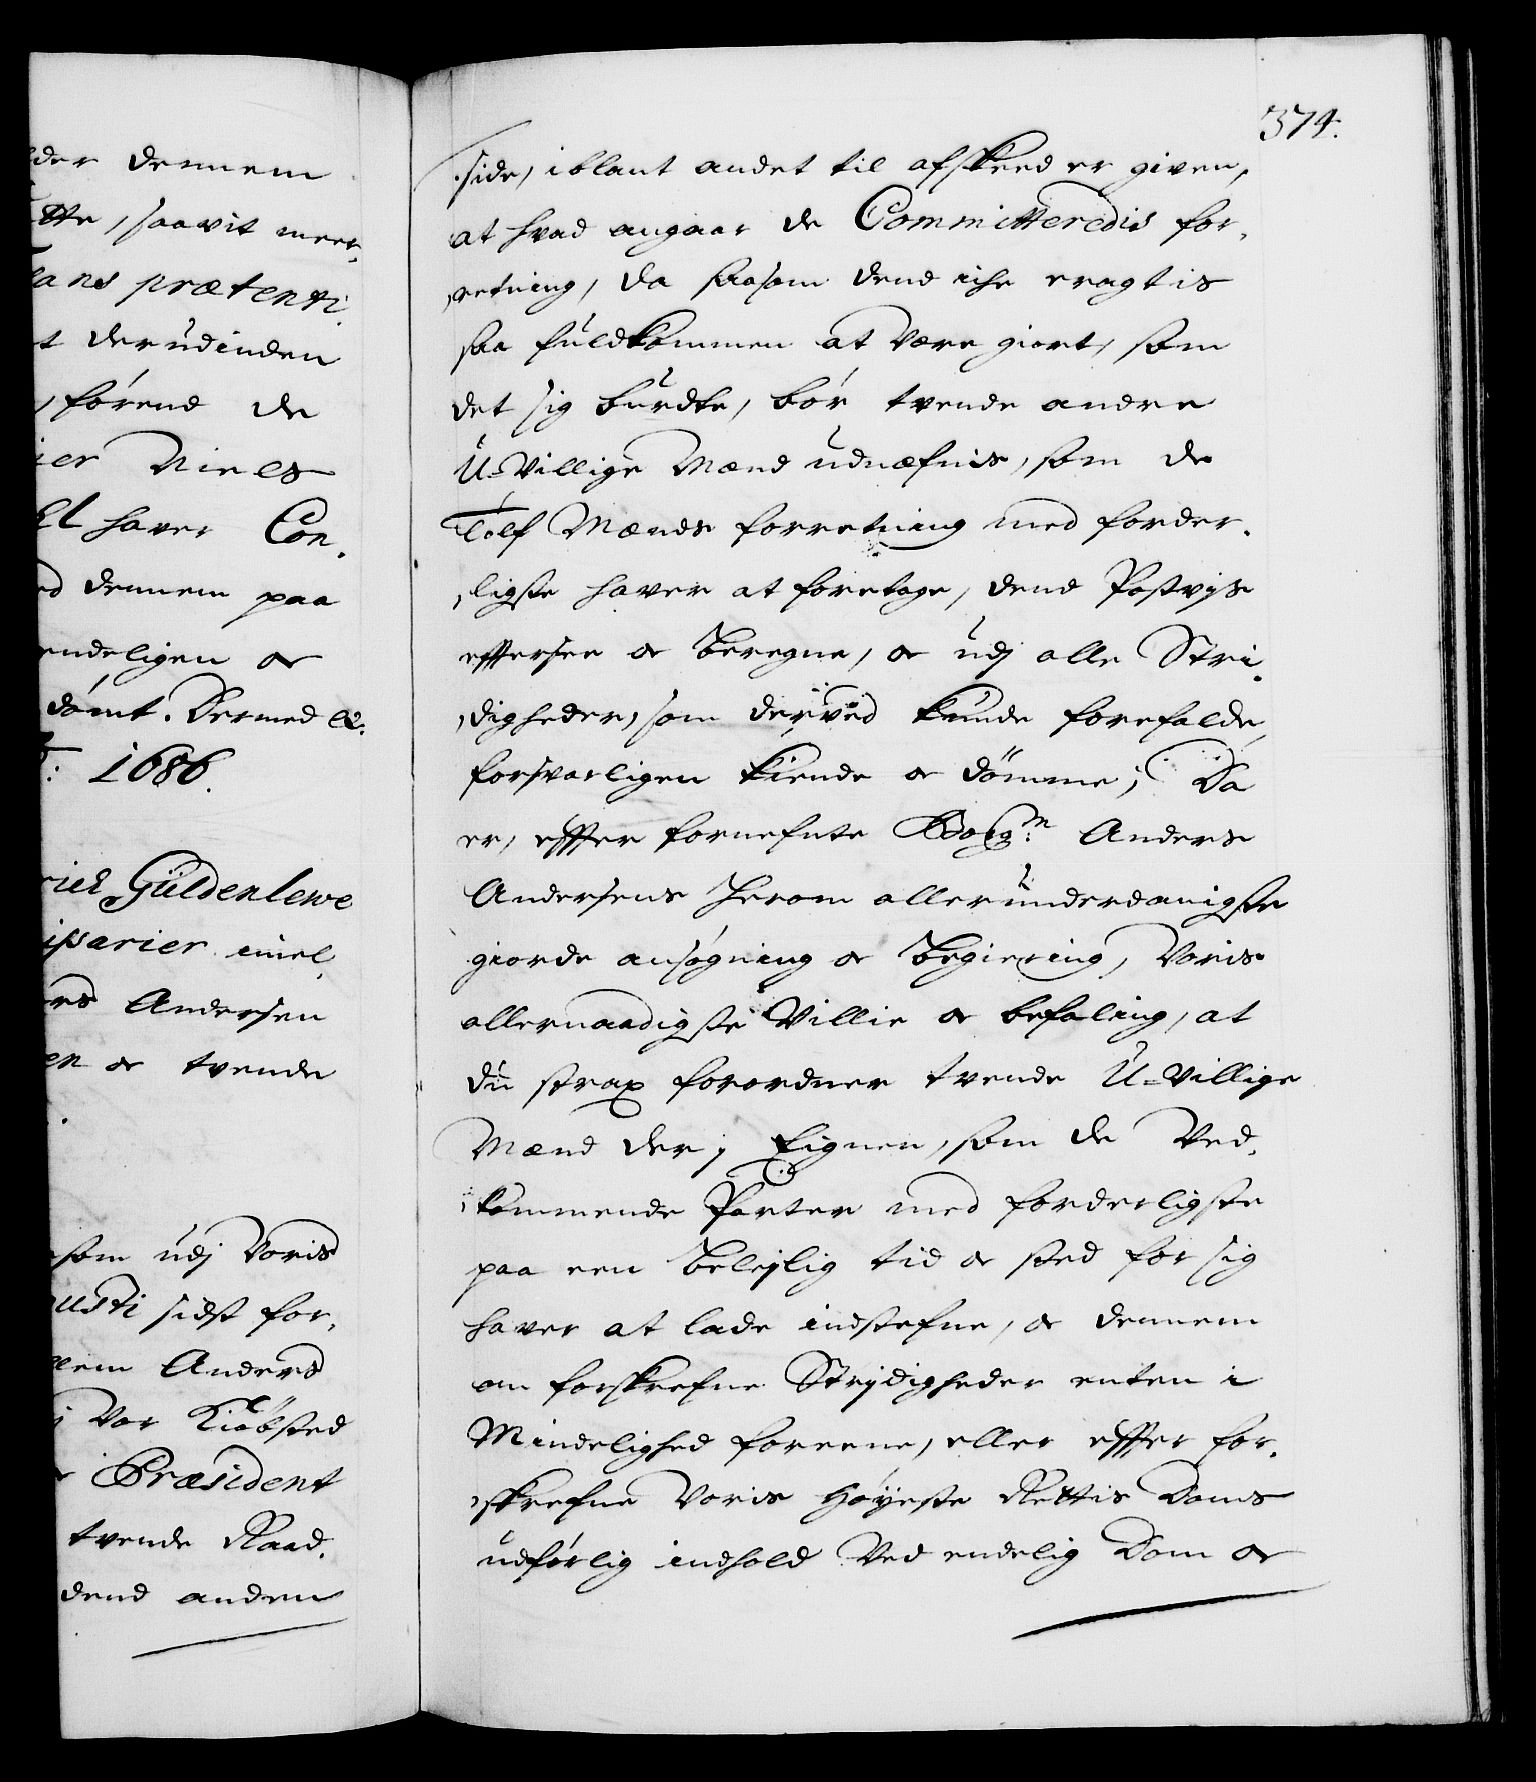 der dennem
tte, saavit meer,
ans prætenti,
t derudinden
, førend de
ier Niels
haver Con,
d dennem paa
endeligen oc
dömt. Dermed &c:
: 1686.
rich Güldenlewe
issarier imel,
rs Andersen
en oc tvende
som udj Voris
usti sidst for,
lem Anders
j Vor Kiøbsted
Præsident
tvende Raad,
dend anden
374.
side, iblant andet til afskeed er given,
at hvad angaar de Committeredis for,
retning, da saasom dend iche eragtis
saa fuldkommen at være giort, som
det sig burdte, bör tvende andre
U-Villige Mænd udnæfnis, som de
Tolf Mænds forretning med forder,
ligste haver at foretage, dend Postvjs
effterse oc beregne, oc udj alle Stri,
digheder, som derved kunde forefalde,
forsvarligen kiende oc dömme; Da
er, effter fornefnte Borgm: Anders
Andersens herom allerunderdanigste
giorde ansøgning oc begiering, Voris
allernaadigste Villie oc befaling, at
du strax forordner tvende U-Villige
Mænd der i Eignen, som de Ved,
kommende Parter med forderligste
paa een belejlig tid oc sted for sig
haver at lade indstefne, oc dennem
om forskrefne Strjdigheder enten i
Mindelighed foreene, eller effter for,
skrefne Voris Höyeste Rettis Doms
udførlig indhold Ved endelig Dom oc